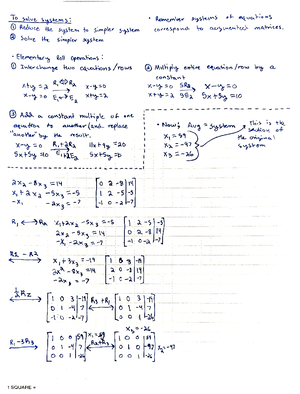 To solve systems:
① Reduce the system to simpler system
② Solve the simpler system
• Remember systems of equations
correspond to augmented matrices.
• Elementary Row operations:
① Interchange two equations/rows
x+y=2 R₁↔R₂ x-y=0
x-y=0 E₁↔E₂ x+y=2
② Multiply entire equation/row by a
constant
x-y=0 5R₂ x-y=0
x+y=2 5E₂ 5x+5y=10
③ Add a constant multiple of one
equation to another (and replace
"another" by the result.
x-y=0 R₁+2R₂ 11x+9y=20
5x+5y=10
• Now, Aug = system
x₁ = 59
x₂ = -97
x₃ = -26
This is the
solution of
the original
system
2x₂-8x₃=14 [0 2 -8 | 14]
x₁+2x₂-5x₃=-5 [1 2 -5 | -5]
-x₁ -2x₃=-7 [-1 0 -2 | -7]
R₁↔R₂ x₁+2x₂-5x₃=-5 [1 2 -5 | -5]
2x₂-8x₃=14 [0 2 -8 | 14]
-x₁-2x₃=-7 [-1 0 -2 | -7]
R1 - R2
x₁+3x₃=-19
-8x₃=14
-2x₃=-7
½R₂ [1 0 3 | -19] R₃+R₁ [1 0 3 | -19]
[0 1 -4 | 7] [0 1 -4 | 7]
[-1 0 -2 | -7] [0 0 1 | -26]
x₃=-26
R₁-3R₃ [1 0 0 | 59] x₁=59
[0 1 -4 | 7]
[0 0 1 | -26]
x₂=-97
1 SQUARE =